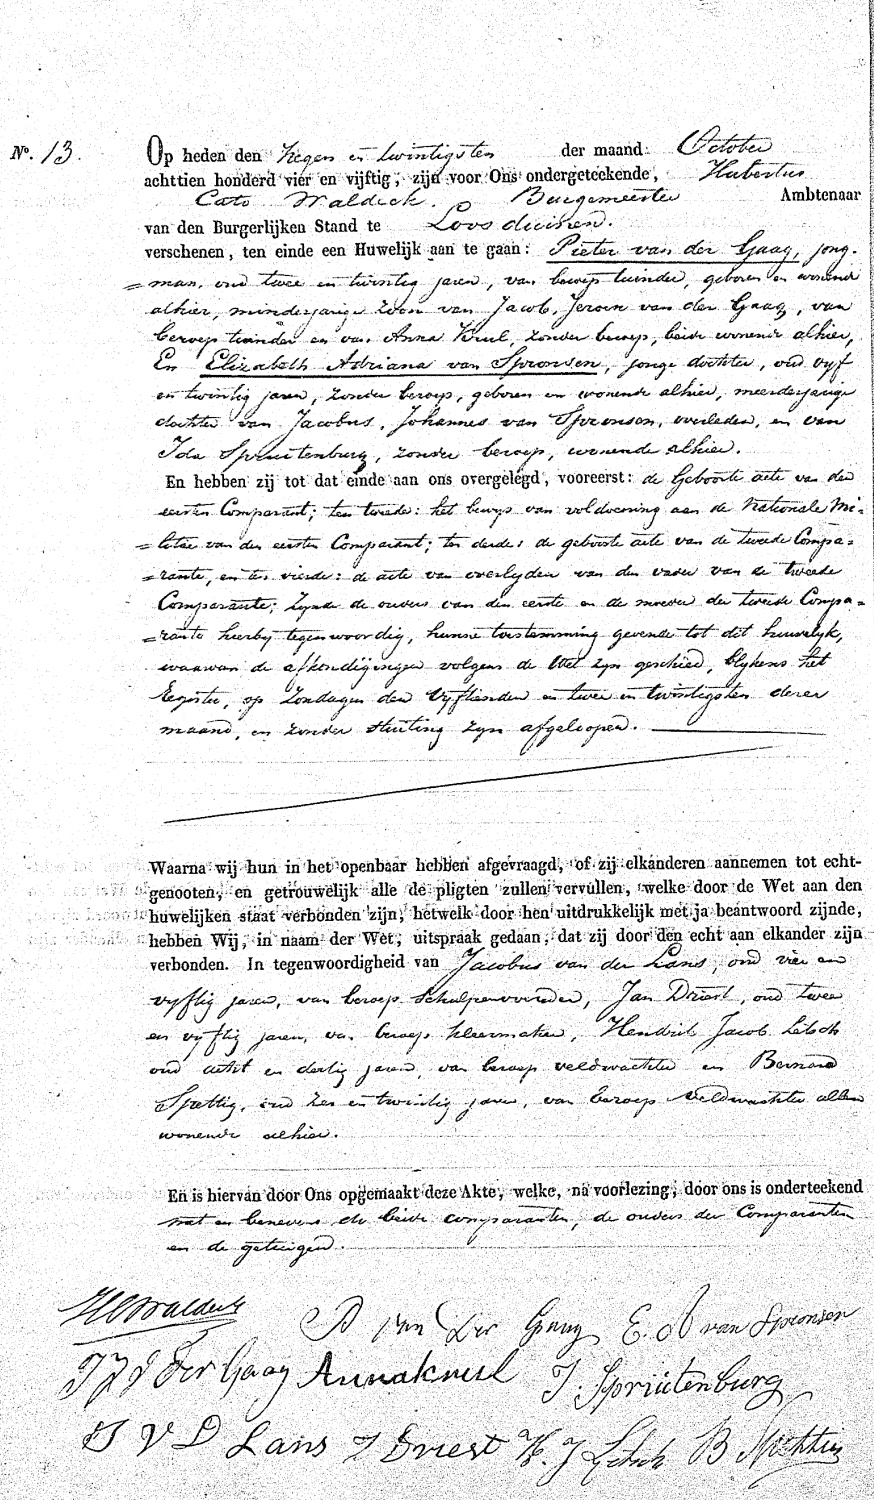 No. 13.
Op heden den negen en twintigsten der maand October
achttien honderd vier en vijftig, zijn voor Ons ondergeteekende, Hubertus
Cato Waldeck. Burgemeester Ambtenaar
van den Burgerlijken Stand te Loosduinen.
verschenen, ten einde een Huwelijk aan te gaan: Pieter van der Gaag, jong-
=man, oud twee en twintig jaren, van beroep tuinder, geboren en wonende
alhier, minderjarige zoon van Jacob Jeroen van der Gaag, van
beroep tuinder en van Anna Krul, zonder beroep, beide wonende alhier,
En Elizabeth Adriana van Spronsen, jonge dochter, oud vyf
en twintig jaren, zonder beroep, geboren en wonende alhier, meerderjarige
dochter van Jacobus Johannes van Spronsen, overleden, en van
Ida Spruitenburg, zonder beroep, wonende alhier.
En hebben zij tot dat einde aan ons overgelegd, vooreerst: de Geboorte acte van den
eersten Comparant; ten tweede: het bewys van voldoening aan de Nationale Mi-
=litie van den eersten Comparant; ten derde: de geboorte acte van de tweede Compa-
=rante, en ten vierde: de acte van overlyden van den vader van de tweede
Comparante; zynde de ouders van den eerste en de moeder der tweede Compa-
=rante hierby tegenwoordig, hunne toestemming gevende tot dit huwelyk,
waarvan de afkondigingen volgens de Wet zyn geschied, blykens het
Register, op Zondagen den Vyftienden en twee en twintigsten dezer
maand, en zonder stuiting zyn afgeloopen.
Waarna wij hun in het openbaar hebben afgevraagd, of zij elkanderen aannemen tot echt-
genooten, en getrouwelijk alle de pligten zullen vervullen, welke door de Wet aan den
huwelijken staat verbonden zijn; hetwelk door hen uitdrukkelijk met ja beantwoord zijnde,
hebben Wij, in naam der Wet, uitspraak gedaan, dat zij door den echt aan elkander zijn
verbonden. In tegenwoordigheid van Jacobus van der Lans, oud vier en
vyftig jaren, van beroep Schulpenvoerder, Jan Driest, oud twee
en vyftig jaren, van beroep kleermaker, Hendrik Jacob Letsch
oud acht en dertig jaren, van beroep veldwachter en Bernard
oud zes en twintig jaren, van beroep veldwachter allen
wonende alhier.
En is hiervan door Ons opgemaakt deze Akte, welke, na voorlezing, door ons is onderteekend
met en benevens de beide comparanten, de ouders der Comparanten
en de getuigen.
HCWaldeck
P van der Gaag E. A van Spronsen
J J V der Gaag Anna krul I. Sprúitenburg
J V D Lans J Driest H. J Letsch B